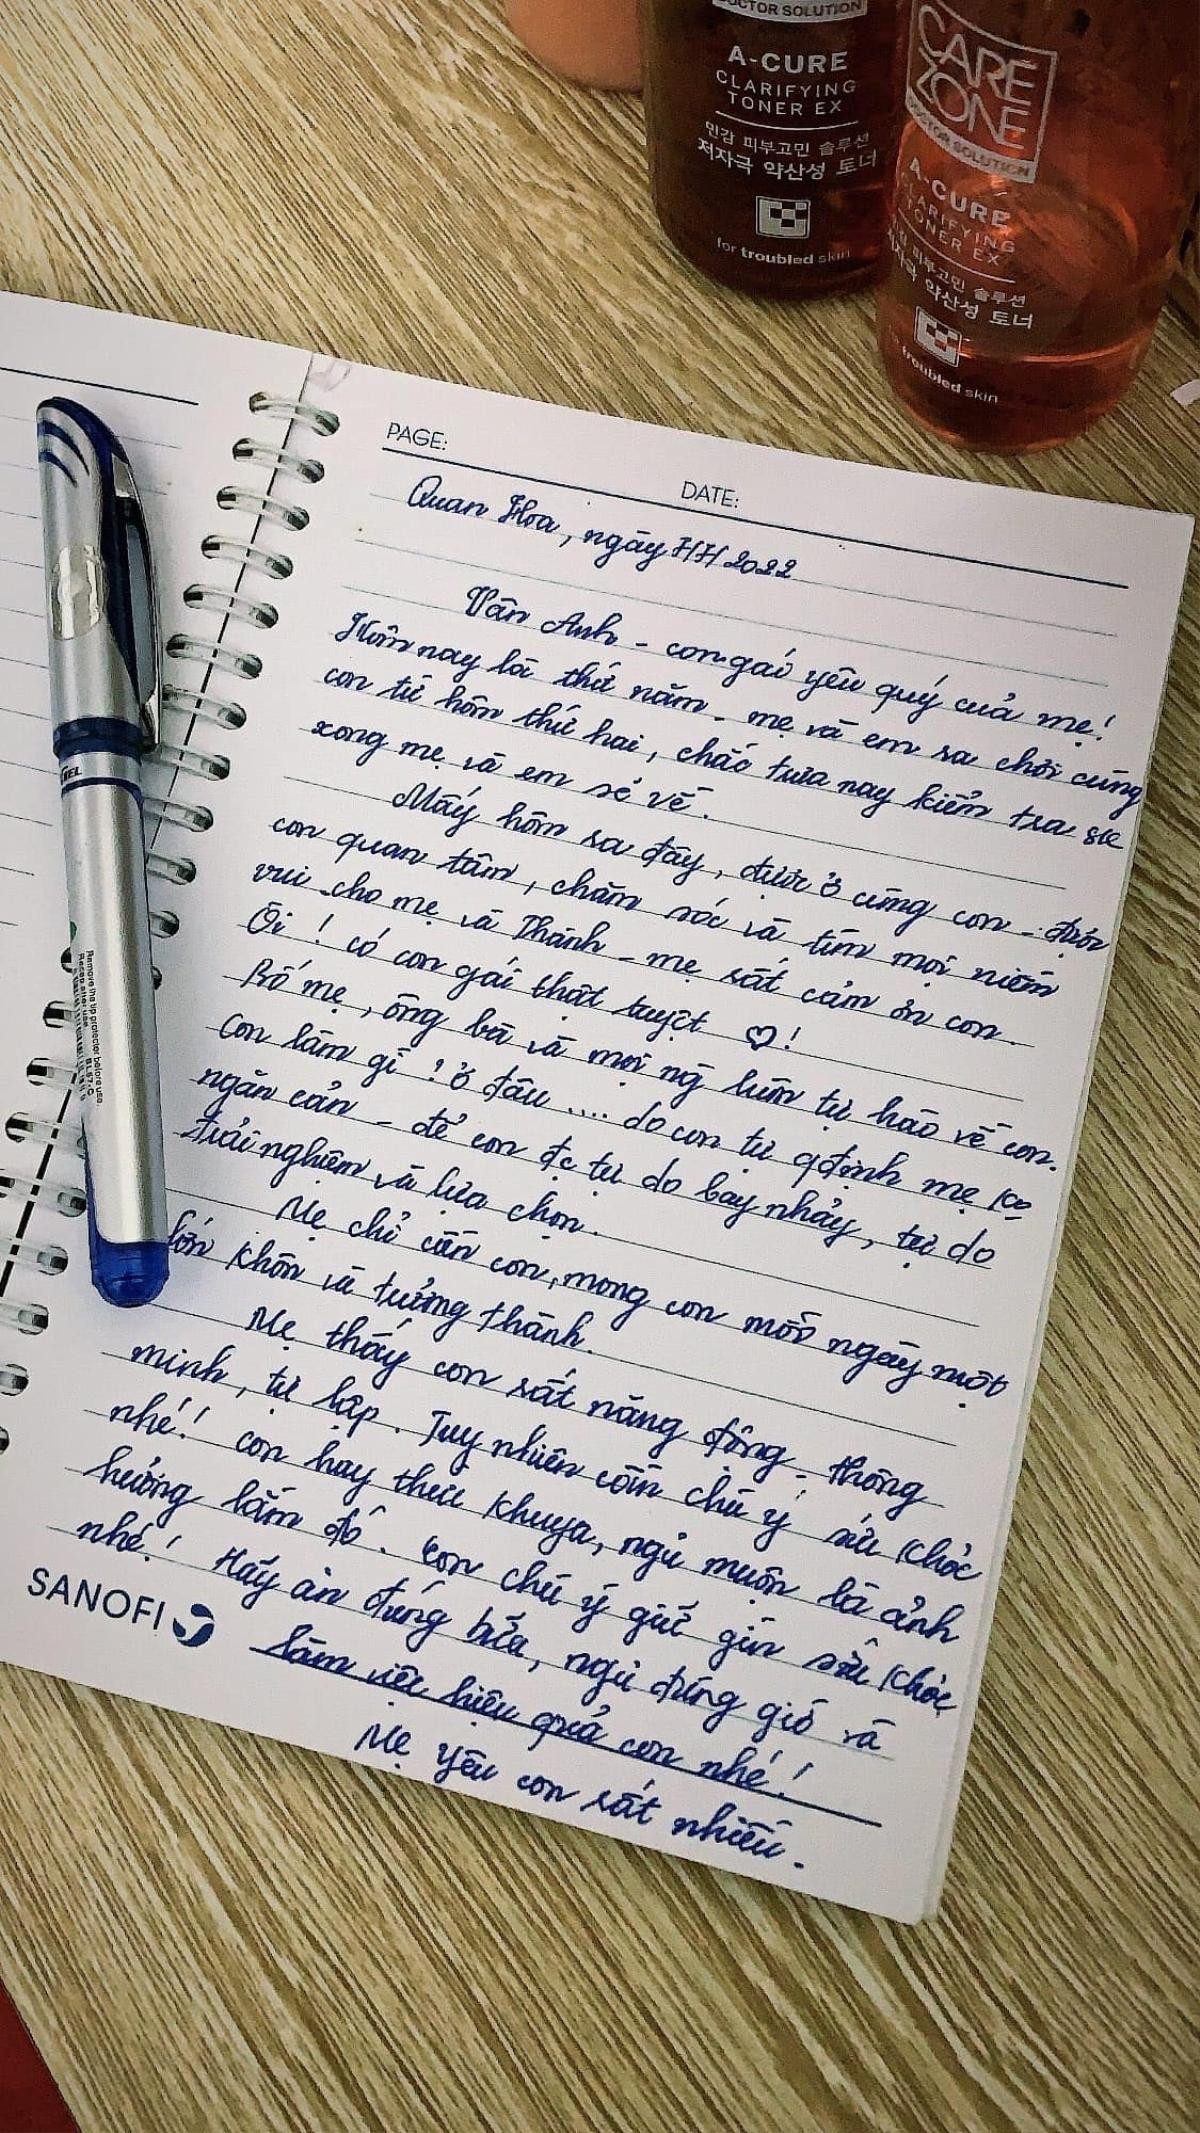 DOCTOR SOLUTION
A-CURE
CLARIFYING
TONER EX
민감 피부고민 솔루션
저자극 약산성 토너
for troubled skin
CARE
ZONE
DOCTOR SOLUTION
A-CURE
CLARIFYING
TONER EX
피부고민 솔루션
저자극 약산성 토너
troubled skin
PAGE:
DATE:
Quan Hoa, ngày 7/7/2022
Vân Anh - con gái yêu quý của mẹ!
Hôm nay là thứ năm - mẹ và em ra chơi cùng
con từ hôm thứ hai, chắc trưa nay kiểm tra sk
xong mẹ và em sẽ về.
Mấy hôm ra đây, được ở cùng con - được
con quan tâm, chăm sóc và tìm mọi niềm
vui cho mẹ và Thành - mẹ rất cảm ơn con.
Ôi! có con gái thật tuyệt ♡!
Bố mẹ, ông bà và mọi ng luôn tự hào về con.
Con làm gì? ở đâu .... do con tự qđịnh mẹ ko
ngăn cản - để con đc tự do bay nhảy, tự do
trải nghiệm và lựa chọn.
Mẹ chỉ cần con, mong con mỗi ngày một
lớn khôn và trưởng thành.
Mẹ thấy con rất năng động, thông
minh, tự lập. Tuy nhiên còn chú ý sức khỏe
nhé! con hay thức khuya, ngủ muộn là ảnh
hưởng lắm đó. Con chú ý giữ gìn sức khỏe
nhé! Hãy ăn đúng bữa, ngủ đúng giờ và
làm việc hiệu quả con nhé!
Mẹ yêu con rất nhiều.
SANOFI
Remove the tip protector before use.
Recap after use.
BL57-C